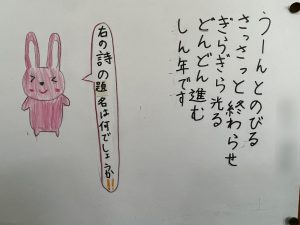 うーんとのびる
さっさっと終わらせ
ぎらぎら光る
どんどん進む
しん年です
右の詩の題名は何でしょうか!!